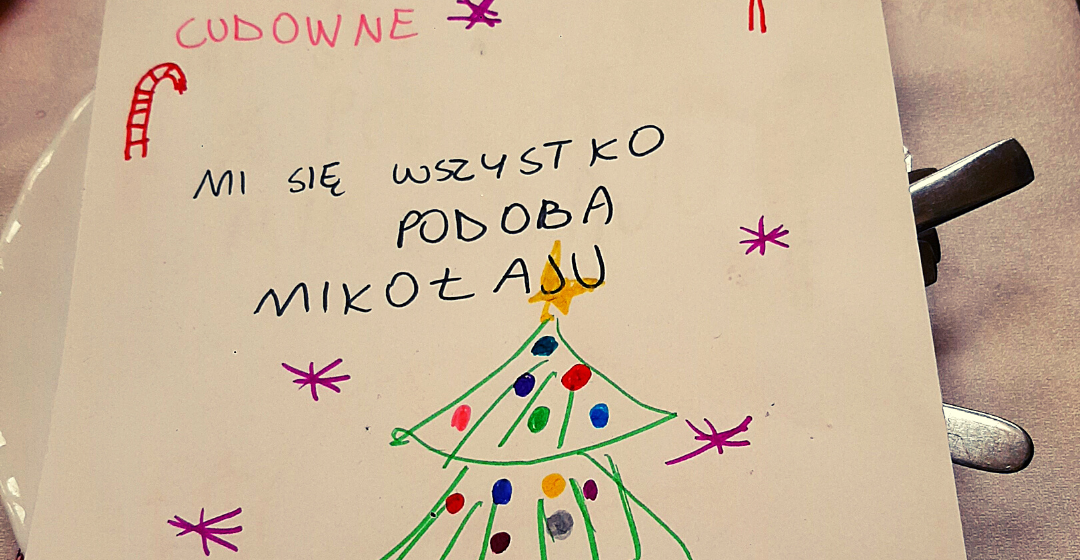 CUDOWNE
MI SIĘ WSZYSTKO
PODOBA
MIKOŁAJU